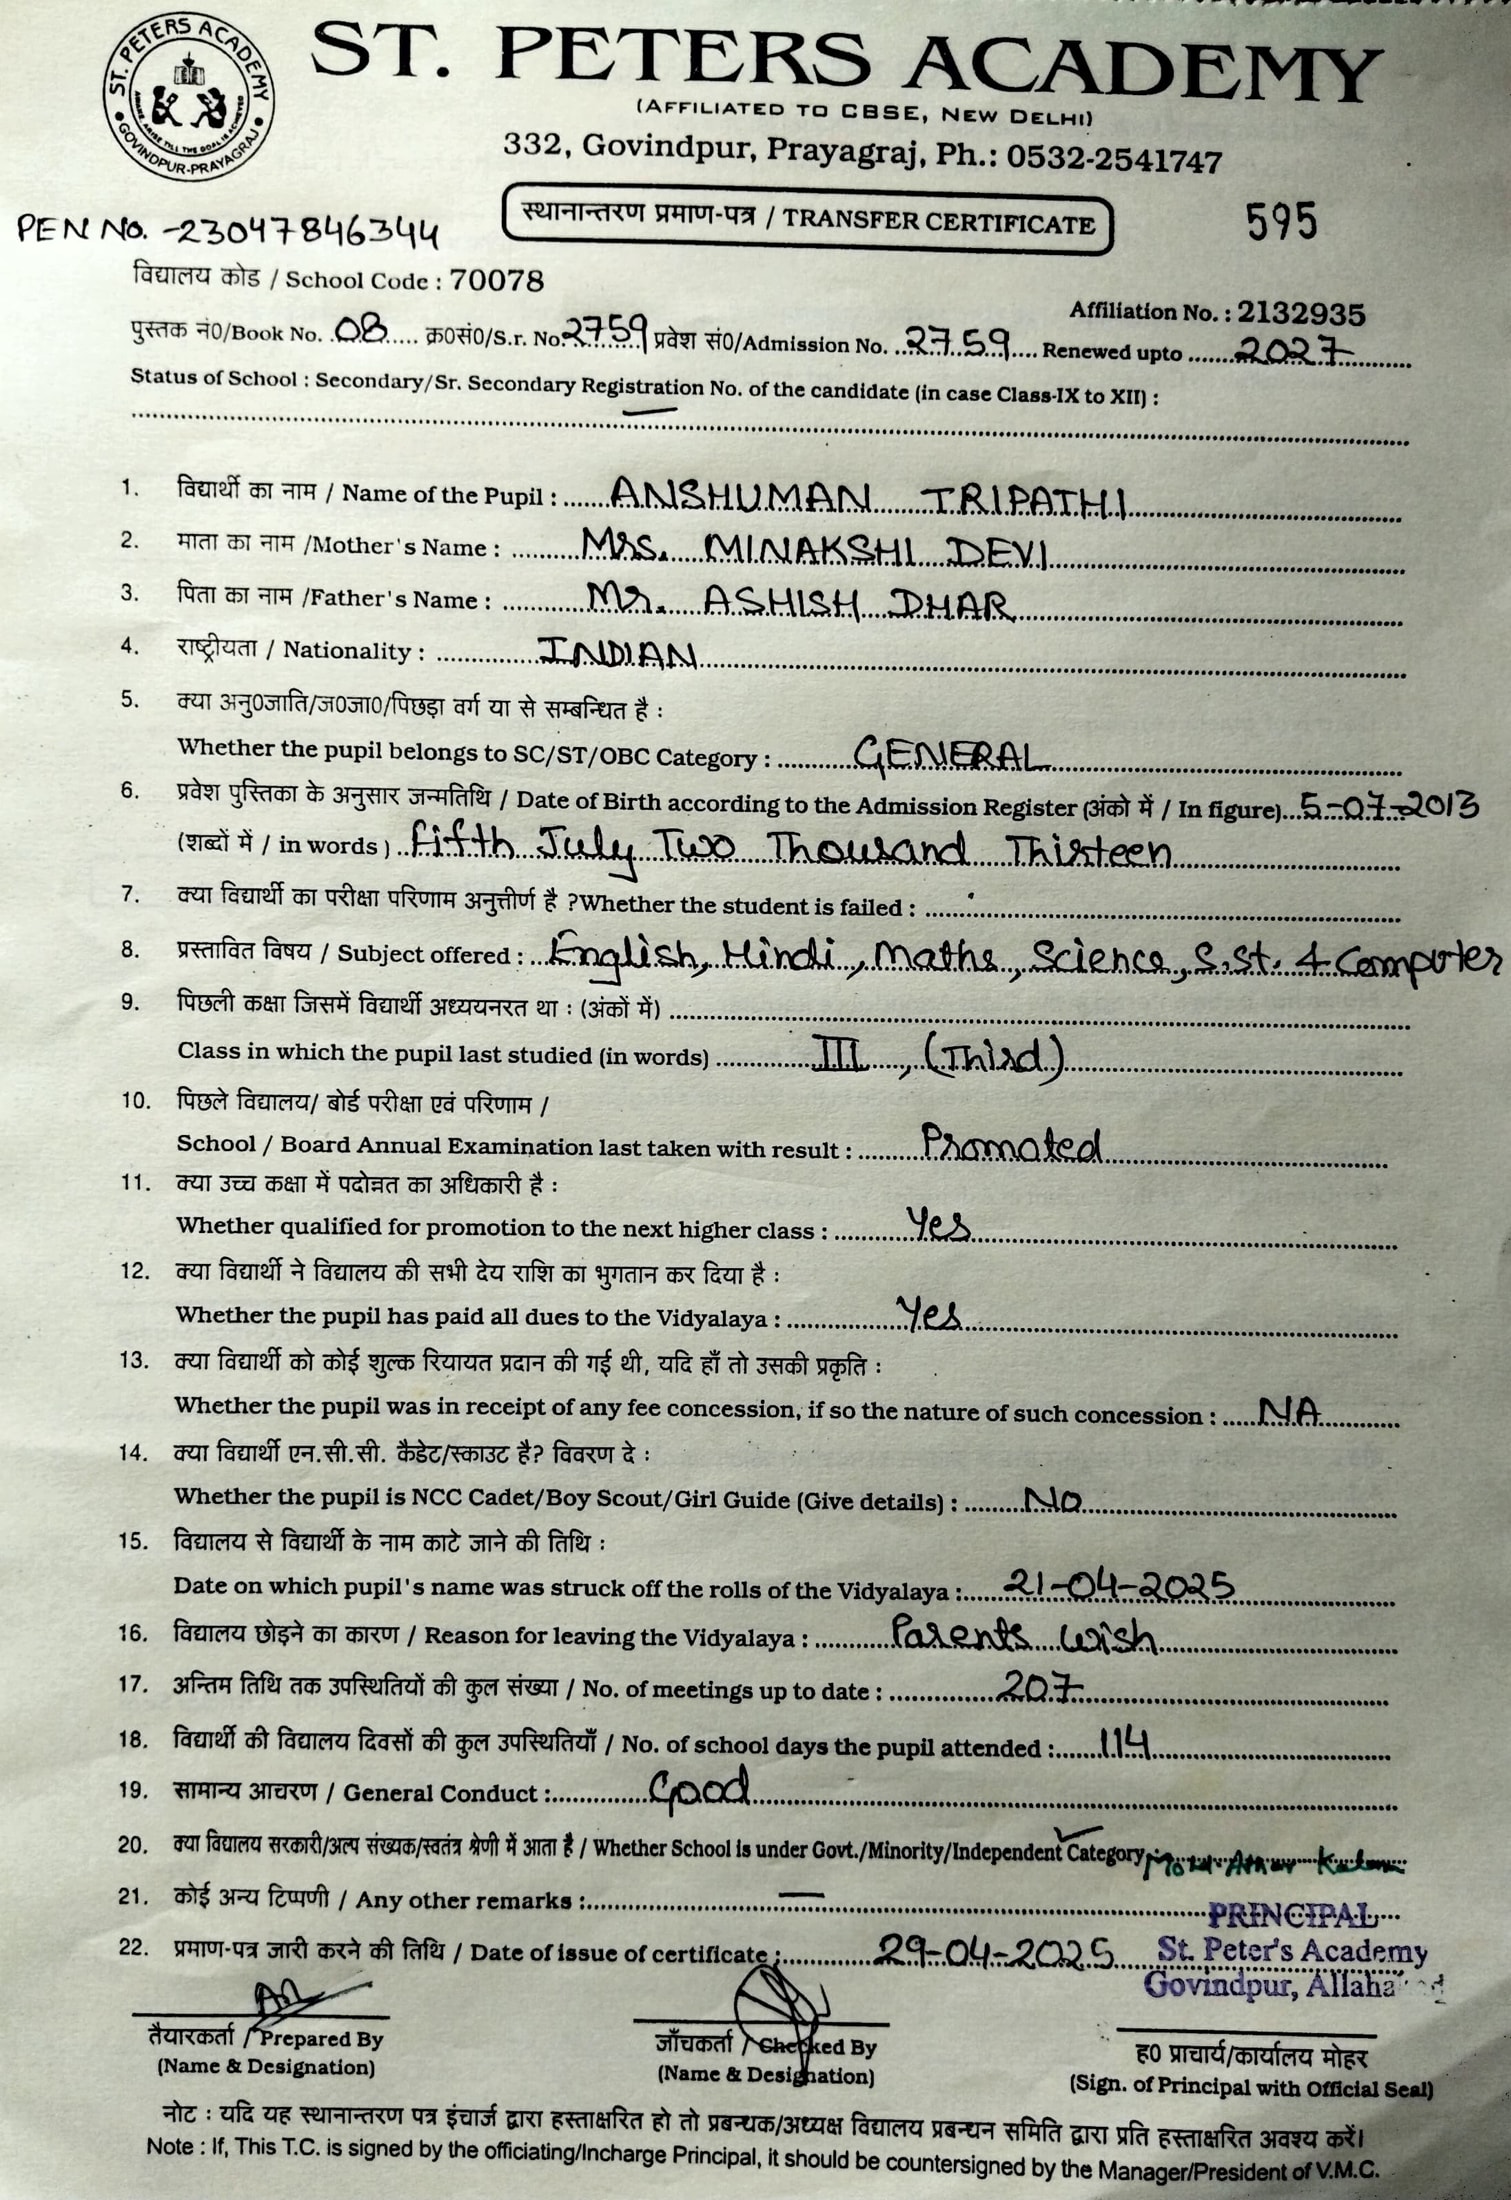 ST. PETERS ACADEMY
GOVINDPUR-PRAYAGRAJ
ST. PETERS ACADEMY
(AFFILIATED TO CBSE, NEW DELHI)
332, Govindpur, Prayagraj, Ph.: 0532-2541747
स्थानान्तरण प्रमाण-पत्र / TRANSFER CERTIFICATE
595
PEN NO. -23047846344
विद्यालय कोड / School Code : 70078
Affiliation No. : 2132935
पुस्तक नं0/Book No. 08 क्र0सं0/S.r. No. 2759 प्रवेश सं0/Admission No. 2759 Renewed upto 2027
Status of School : Secondary/Sr. Secondary Registration No. of the candidate (in case Class-IX to XII) :
—
1. विद्यार्थी का नाम / Name of the Pupil : ANSHUMAN TRIPATHI
2. माता का नाम /Mother's Name : Mrs. MINAKSHI DEVI
3. पिता का नाम /Father's Name : Mr. ASHISH DHAR
4. राष्ट्रीयता / Nationality : INDIAN
5. क्या अनु0जाति/ज0जा0/पिछड़ा वर्ग या से सम्बन्धित है :
Whether the pupil belongs to SC/ST/OBC Category : GENERAL
6. प्रवेश पुस्तिका के अनुसार जन्मतिथि / Date of Birth according to the Admission Register (अंको में / In figure) 5-07-2013
(शब्दों में / in words ) fifth July Two Thousand Thirteen
7. क्या विद्यार्थी का परीक्षा परिणाम अनुत्तीर्ण है ?Whether the student is failed :
8. प्रस्तावित विषय / Subject offered : English, Hindi, Maths, Science, S.St. & Computer
9. पिछली कक्षा जिसमें विद्यार्थी अध्ययनरत था : (अंकों में)
Class in which the pupil last studied (in words) III, (Third)
10. पिछले विद्यालय/ बोर्ड परीक्षा एवं परिणाम /
School / Board Annual Examination last taken with result : Promoted
11. क्या उच्च कक्षा में पदोन्नत का अधिकारी है :
Whether qualified for promotion to the next higher class : Yes
12. क्या विद्यार्थी ने विद्यालय की सभी देय राशि का भुगतान कर दिया है :
Whether the pupil has paid all dues to the Vidyalaya : Yes
13. क्या विद्यार्थी को कोई शुल्क रियायत प्रदान की गई थी, यदि हाँ तो उसकी प्रकृति :
Whether the pupil was in receipt of any fee concession, if so the nature of such concession : NA
14. क्या विद्यार्थी एन.सी.सी. कैडेट/स्काउट है? विवरण दे :
Whether the pupil is NCC Cadet/Boy Scout/Girl Guide (Give details) : No
15. विद्यालय से विद्यार्थी के नाम काटे जाने की तिथि :
Date on which pupil's name was struck off the rolls of the Vidyalaya : 21-04-2025
16. विद्यालय छोड़ने का कारण / Reason for leaving the Vidyalaya : Parents wish
17. अन्तिम तिथि तक उपस्थितियों की कुल संख्या / No. of meetings up to date : 207
18. विद्यार्थी की विद्यालय दिवसों की कुल उपस्थितियाँ / No. of school days the pupil attended : 114
19. सामान्य आचरण / General Conduct : Good
20. क्या विद्यालय सरकारी/अल्प संख्यक/स्वतंत्र श्रेणी में आता है / Whether School is under Govt./Minority/Independent Category
21. कोई अन्य टिप्पणी / Any other remarks : —
PRINCIPAL
22. प्रमाण-पत्र जारी करने की तिथि / Date of issue of certificate : 29-04-2025
St. Peter's Academy
Govindpur, Allahabad
तैयारकर्ता / Prepared By
(Name & Designation)
जाँचकर्ता / Checked By
(Name & Designation)
ह0 प्राचार्य/कार्यालय मोहर
(Sign. of Principal with Official Seal)
नोट : यदि यह स्थानान्तरण पत्र इंचार्ज द्वारा हस्ताक्षरित हो तो प्रबन्धक/अध्यक्ष विद्यालय प्रबन्धन समिति द्वारा प्रति हस्ताक्षरित अवश्य करें।
Note : If, This T.C. is signed by the officiating/Incharge Principal, it should be countersigned by the Manager/President of V.M.C.